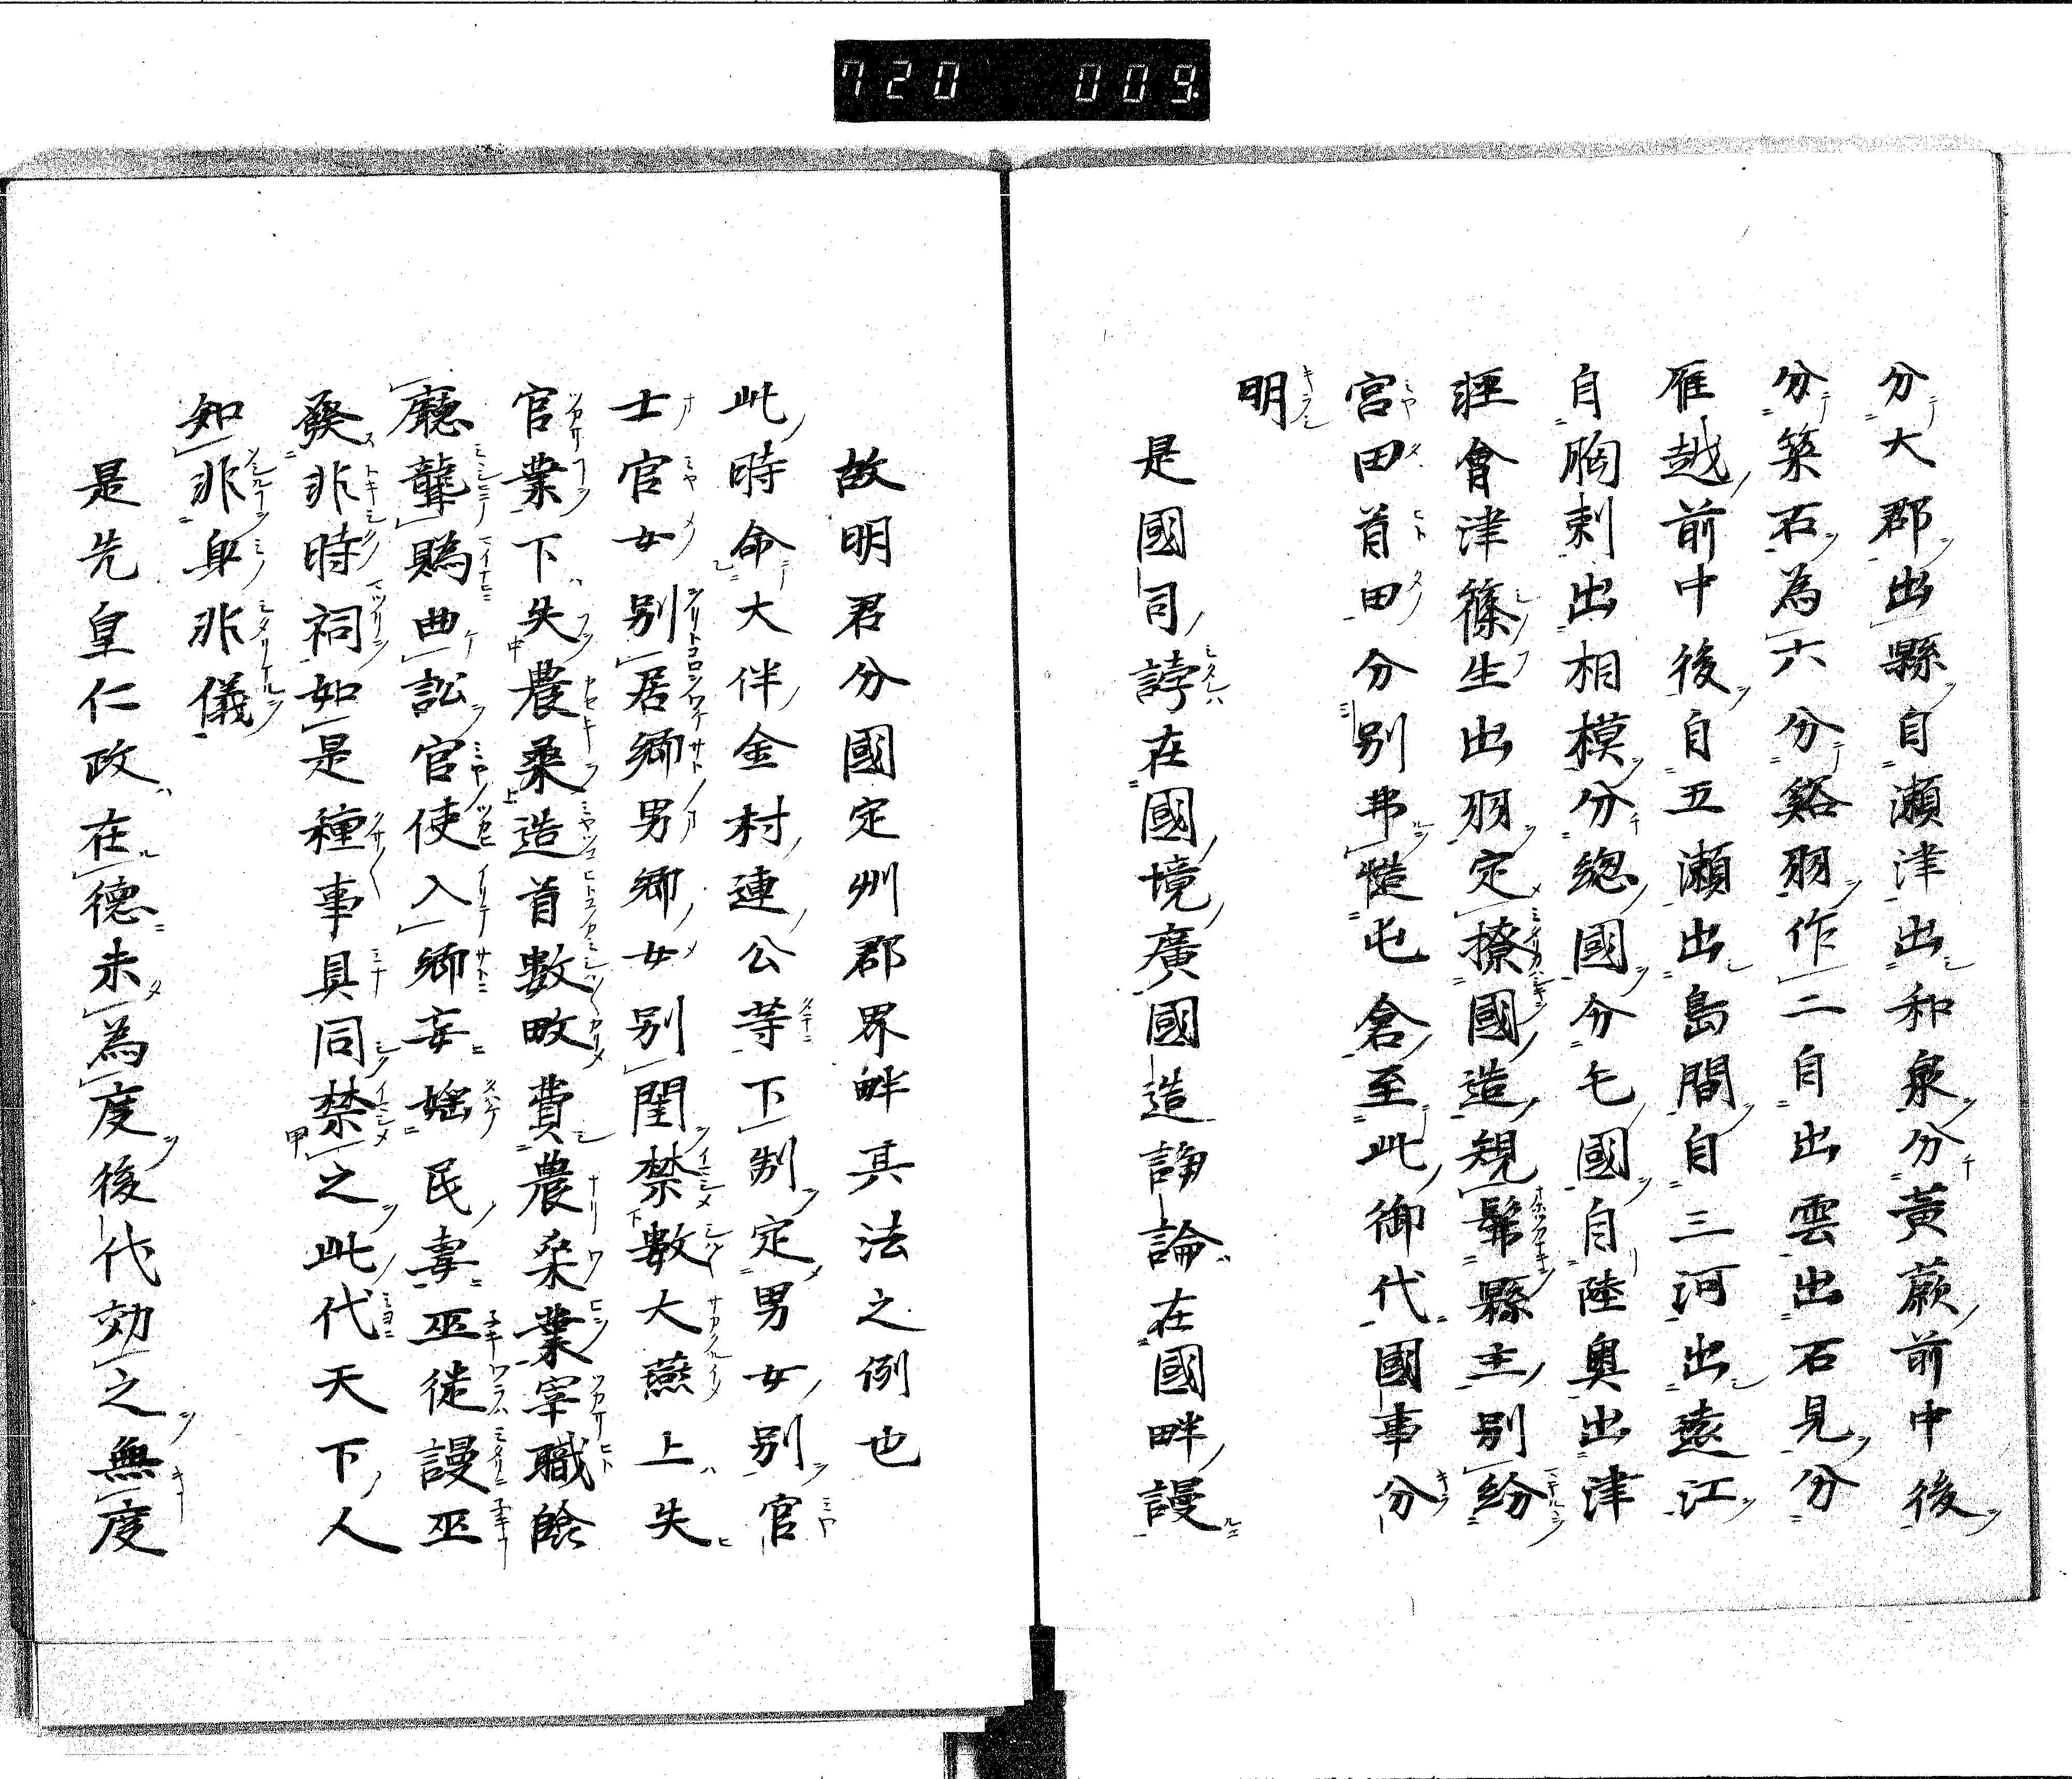 720 009.
分大郡出縣自瀬津出和泉分黃蕨前中後
分築石為六分谿羽作二自出雲出石見分
雁越前中後自五瀬出島間自三河出遠江
自胸刺出相模分總國分乇國自陸奧出津
輕會津篠生出羽定撩國造規髴縣主別紛
宮田首田分別弗愷屯倉至此御代國事分
明
是國司誖在國境廣國造諍論在國畔謾
故明君分國定州郡界畔其法之例也
此時命大伴金村連公等下制定男女別官
士官女別居鄉男鄉女別閨禁數大燕上失
官業下失農桑造首數畋費農桒業宰職飮
廳聾賜曲訟官使入鄉妄婬民毒巫徒謾巫
發非時祠如是種事具同禁之此代天下人
知非身非儀
是先皇仁政在德未為度後代効之無度